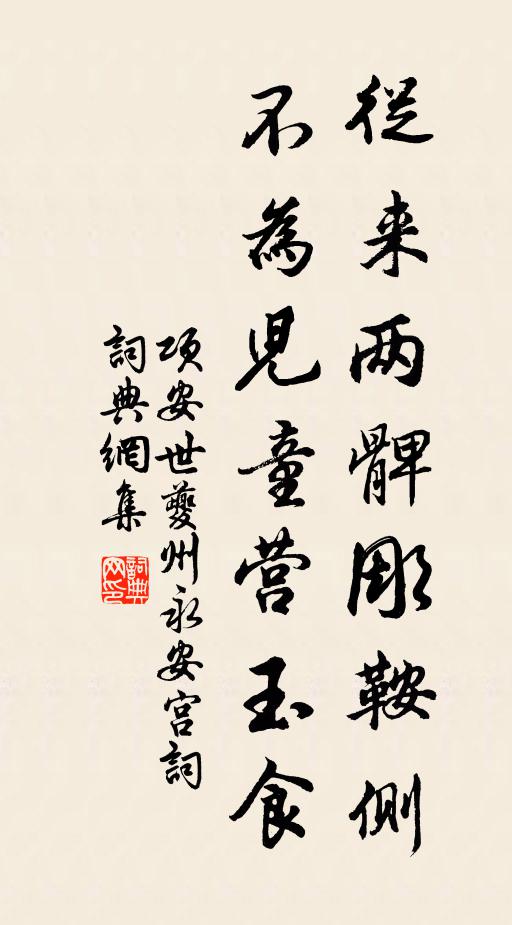 從来两髀彫鞍側
不為児童营玉食
項安世夔州永安宫詞
詞典網集
詞典网印